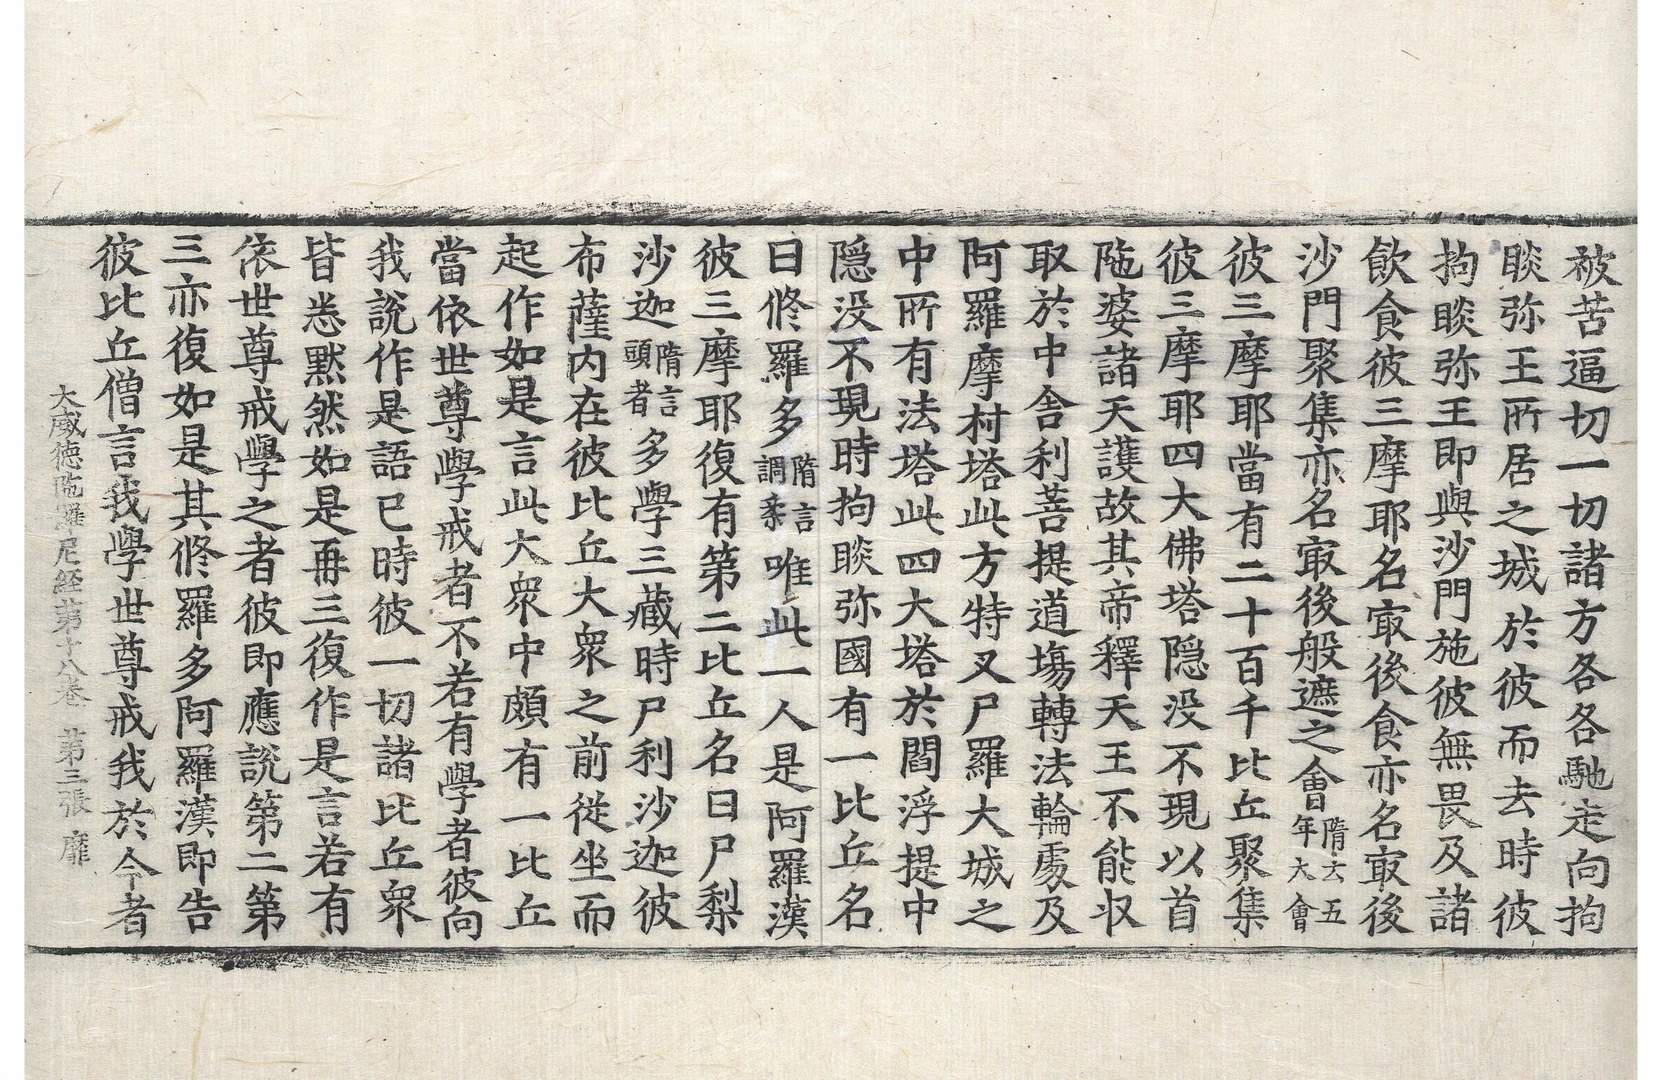 被苦逼切一切諸方各各馳走向拘
睒弥王所居之城於彼而去時彼
拘睒弥王即與沙門施彼無畏及諸
飲食彼三摩耶名㝡後食亦名㝡後
沙門聚集亦名㝡後般遮之會隋云五年大會
彼三摩耶當有二十百千比丘聚集
彼三摩耶四大佛塔隠没不現以首
陁婆諸天護故其帝釋天王不能収
取於中舎利菩提道塲轉法輪處及
阿羅摩村塔此方特叉尸羅大城之
中所有法塔此四大塔於閻浮提中
隠没不現時拘睒弥國有一比丘名
曰修羅多隋言調柔唯此一人是阿羅漢
彼三摩耶復有第二比丘名曰尸梨
沙迦隋言頭者多學三藏時尸利沙迦彼
布薩内在彼比丘大衆之前從坐而
起作如是言此大衆中頗有一比丘
當依世尊學戒者不若有學者彼向
我說作是語已時彼一切諸比丘衆
皆悉黙然如是再三復作是言若有
依世尊戒學之者彼即應說第二第
三亦復如是其修羅多阿羅漢即告
彼比丘僧言我學世尊戒我於今者
大威徳陁羅尼経苐十八卷 苐三張 靡